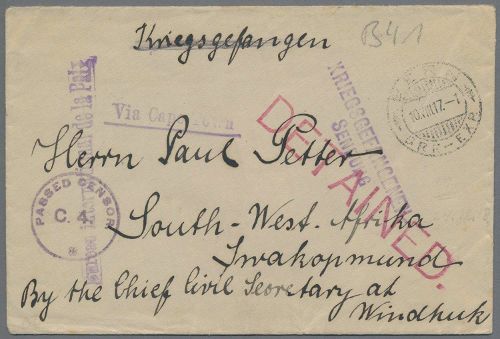 Kriegsgefangen
B41
Via Cape Town
KRIEGSGEFANGENEN
SENDUNG
10.VIII.17.-1
BRF-EXP.
DETAINED.
Herrn Paul Petter
PASSED CENSOR
C. 4.
de la Paix
South-West. Afrika
Swakopmund
By the Chief Civil Secretary at
Windhuk